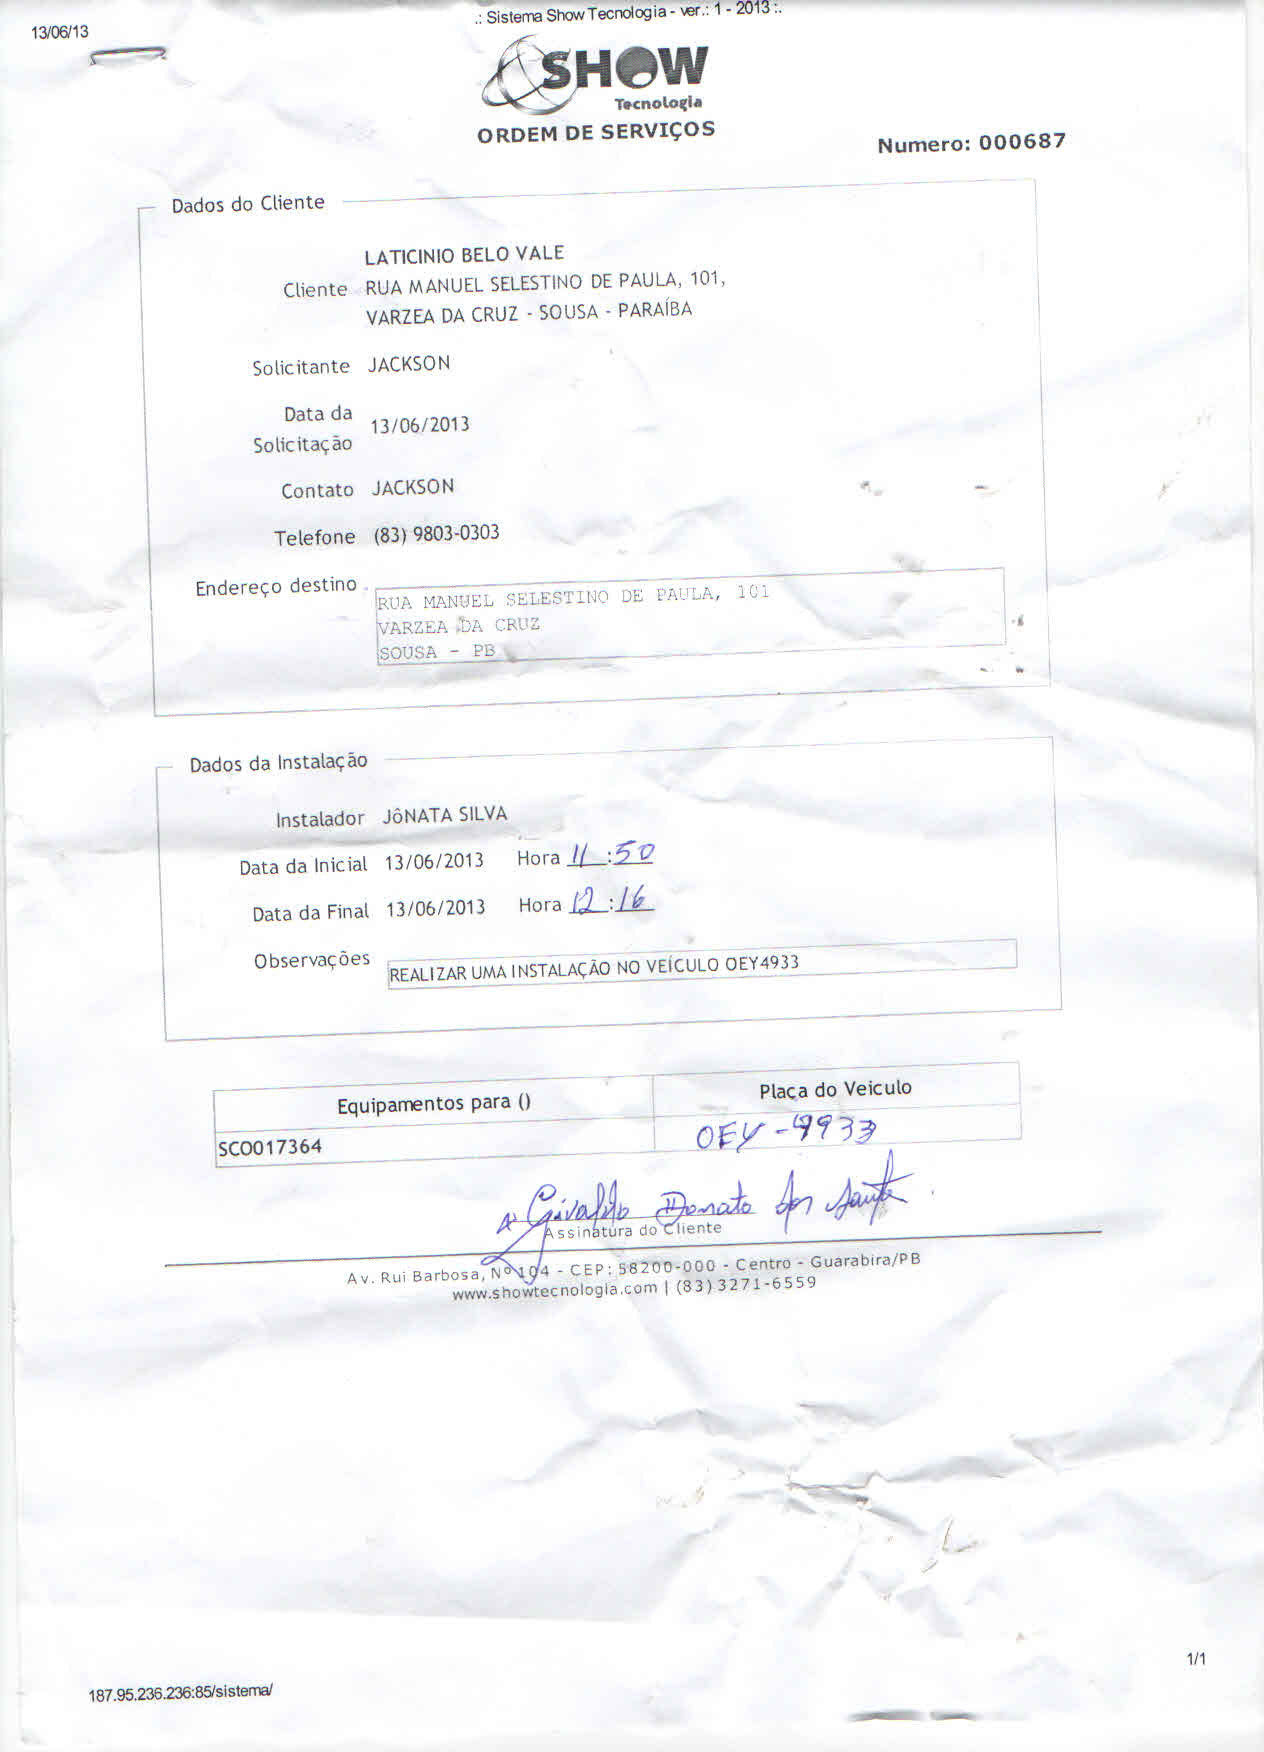 13/06/13
.: Sistema Show Tecnologia - ver.: 1 - 2013 :.
SHOW
Tecnologia
ORDEM DE SERVIÇOS
Numero: 000687
Dados do Cliente
LATICINIO BELO VALE
Cliente RUA MANUEL SELESTINO DE PAULA, 101,
VARZEA DA CRUZ - SOUSA - PARAÍBA
Solicitante JACKSON
Data da
Solicitação 13/06/2013
Contato JACKSON
Telefone (83) 9803-0303
Endereço destino
RUA MANUEL SELESTINO DE PAULA, 101
VARZEA DA CRUZ
SOUSA - PB
Dados da Instalação
Instalador JÔNATA SILVA
Data da Inicial 13/06/2013 Hora 11:50
Data da Final 13/06/2013 Hora 12:16
Observações REALIZAR UMA INSTALAÇÃO NO VEÍCULO OEY4933
Equipamentos para () Placa do Veiculo
SCO017364 OEY-4933
Givaldo Donato dos Santos
Assinatura do Cliente
Av. Rui Barbosa, Nº 104 - CEP: 58200-000 - Centro - Guarabira/PB
www.showtecnologia.com | (83) 3271-6559
1/1
187.95.236.236:85/sistema/